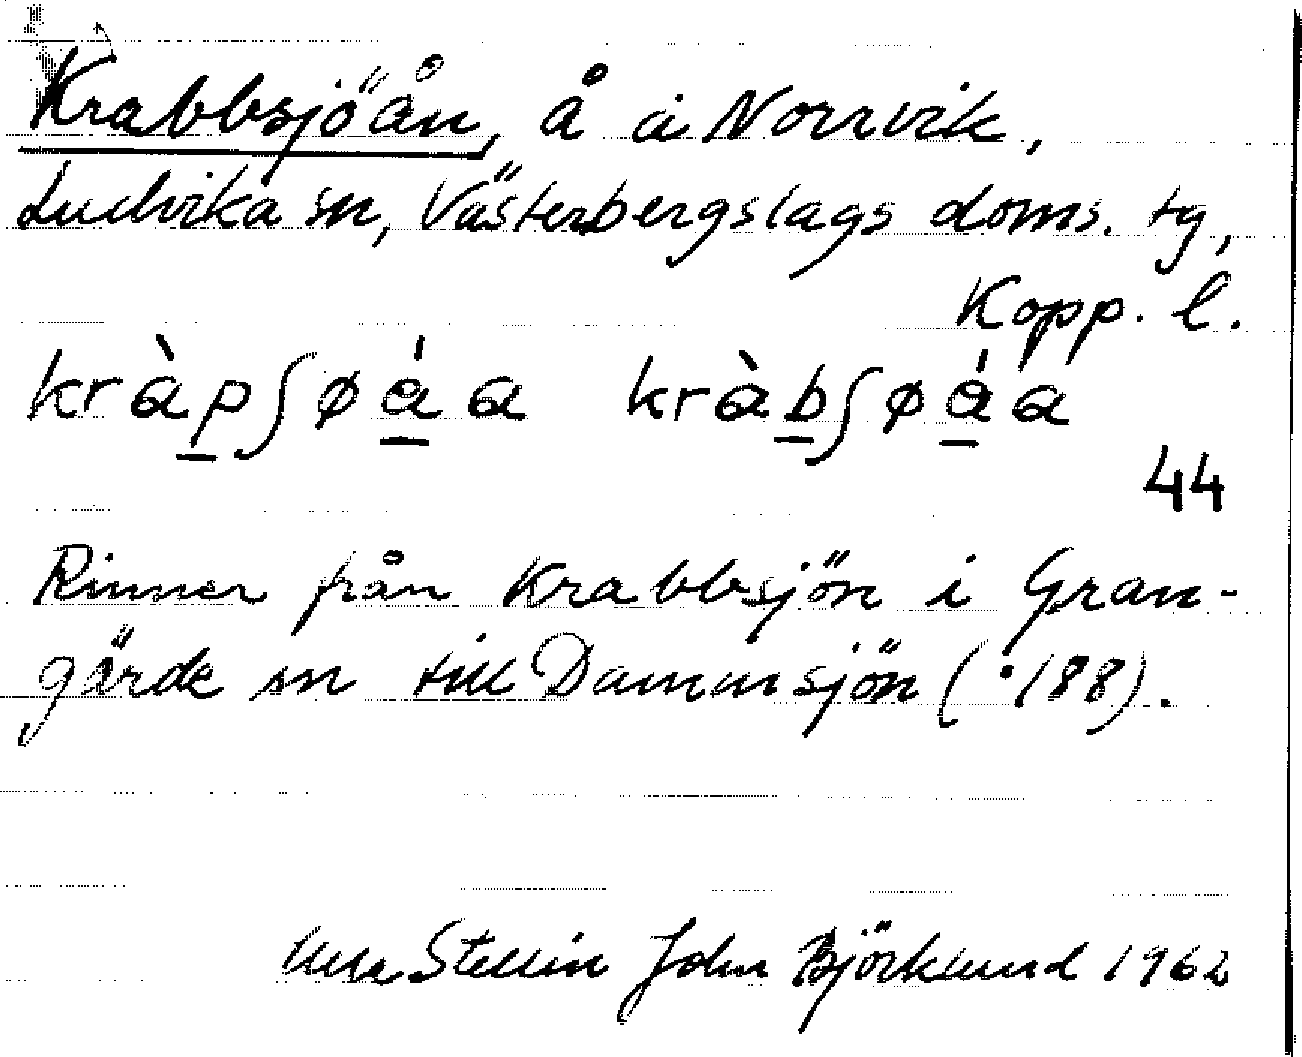 Krabbsjöån, å i Norrvik,
Ludvika sn, Västerbergslags doms. tg,
Kopp. l.
kràpʃøá̱a kràḇʃøá̱a
44
Rinner från Krabbsjön i Gran-
gärde sn till Dammsjön (•188).
Ulla Stellin John Björklund 1962